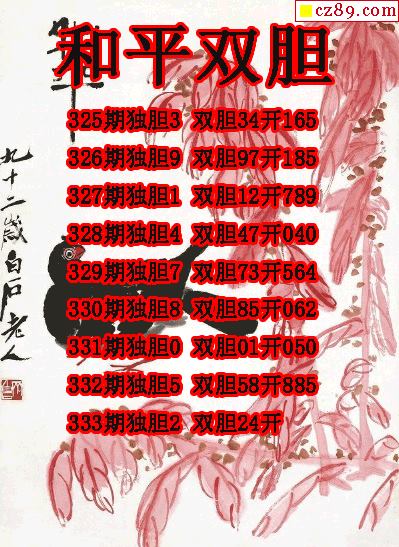 cz89.com
和平双胆
325期独胆3 双胆34开165
326期独胆9 双胆97开185
327期独胆1 双胆12开789
328期独胆4 双胆47开040
329期独胆7 双胆73开564
330期独胆8 双胆85开062
331期独胆0 双胆01开050
332期独胆5 双胆58开885
333期独胆2 双胆24开
九十二歲白石老人